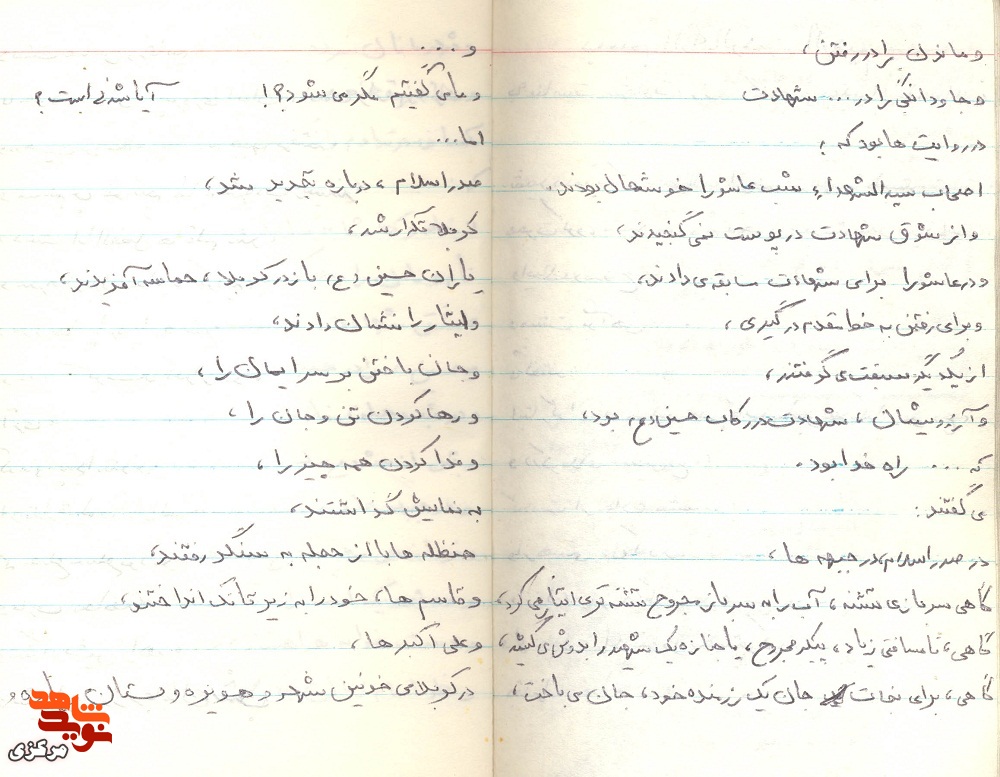 و ماندن را در رفتن،
و جاودانگی را در ... شهادت
در روایت ها بود که :
اصحاب سیدالشهداء شب عاشورا خوشحال بودند.
و از شوق شهادت در پوست نمی گنجیدند،
و در عاشورا برای شهادت سابقه می دادند،
و برای رفتن به خط مقدم درگیری،
از یکدیگر سبقت می گرفتند،
و آرزویشان، شهادت در رکاب حسین (ع) بود،
که ... راه خدا بود.
می گفتند:
در صدر اسلام، در جبهه ها،
گاهی سربازی تشنه، آب را به سرباز مجروح تشنه تری ایثار می کرد،
گاهی، تا مسافتی زیاد، پیکر مجروح، یا جنازه یک شهید را بدوش می کشید،
گاهی، برای نجات جان یک رزمنده خود، جان می باخت،
و ....
و ما می گفتیم مگر می شود؟! آیا شدنی است؟
اما...
صدر اسلام، دوباره تجدید شد،
کربلا تکرار شد،
یاران حسین (ع) باز در کربلا، حماسه آفریدند،
و ایثار را نشان دادند،
و جان باختن بر سر ایمان را،
و رها کردن تن و جان را،
و فدا کردن همه چیز را،
به نمایش گذاشتند،
حنظله ها با از حجله به سنگر رفتند،
و قاسم ها، خود را به زیر تانک انداختند،
و علی اکبرها،
در کربلای خونین شهر و هویزه و بستان و
نوید شاهد
مرکزی